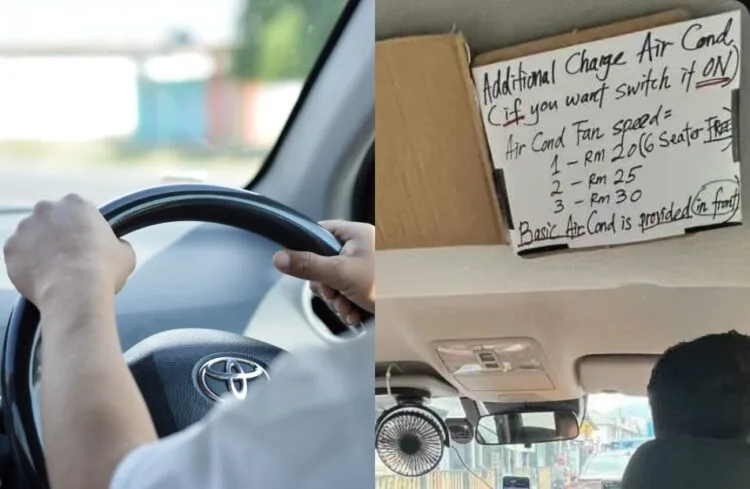 Additional Charge Air Cond
(if you want switch it ON)
Air Cond Fan speed =
1 - RM 20 (6 Seater FREE)
2 - RM 25
3 - RM 30
Basic Air Cond is provided (in front)